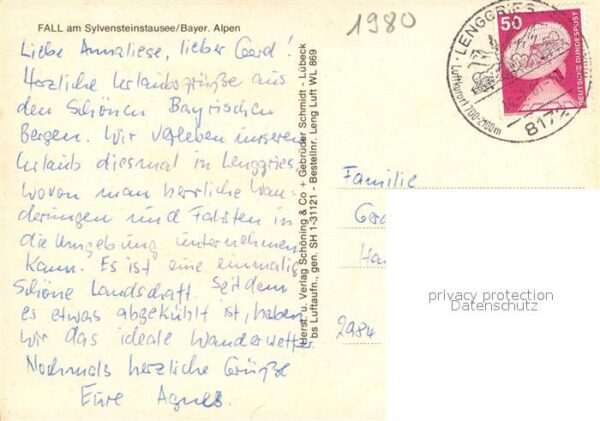 FALL am Sylvensteinstausee/Bayer. Alpen
1980
Liebe Annaliese, lieber Gerd!
Herzliche Urlaubsgrüße aus
den Schönen Bayrischen
Bergen. Wir verleben unseren
Urlaub diesmal in Lenggries,
wovon man herrliche Wan-
derungen und Fahrten in
die Umgebung unternehmen
kann. Es ist eine einmalig
schöne Landschaft. Seitdem
es etwas abgekühlt ist, haben
wir das ideale Wanderwetter.
Nochmals herzliche Grüße
Eure Agnes.
Herst. u. Verlag Schöning & Co + Gebrüder Schmidt - Lübeck
bs Luftaufn., gen. SH 1-31121 - Bestellnr. Leng Luft WL 869
LENGGRIES
Luftkurort 700-1700m
8172
50
DEUTSCHE BUNDESPOST
Familie
Ger
Ha
2984
privacy protection
Datenschutz